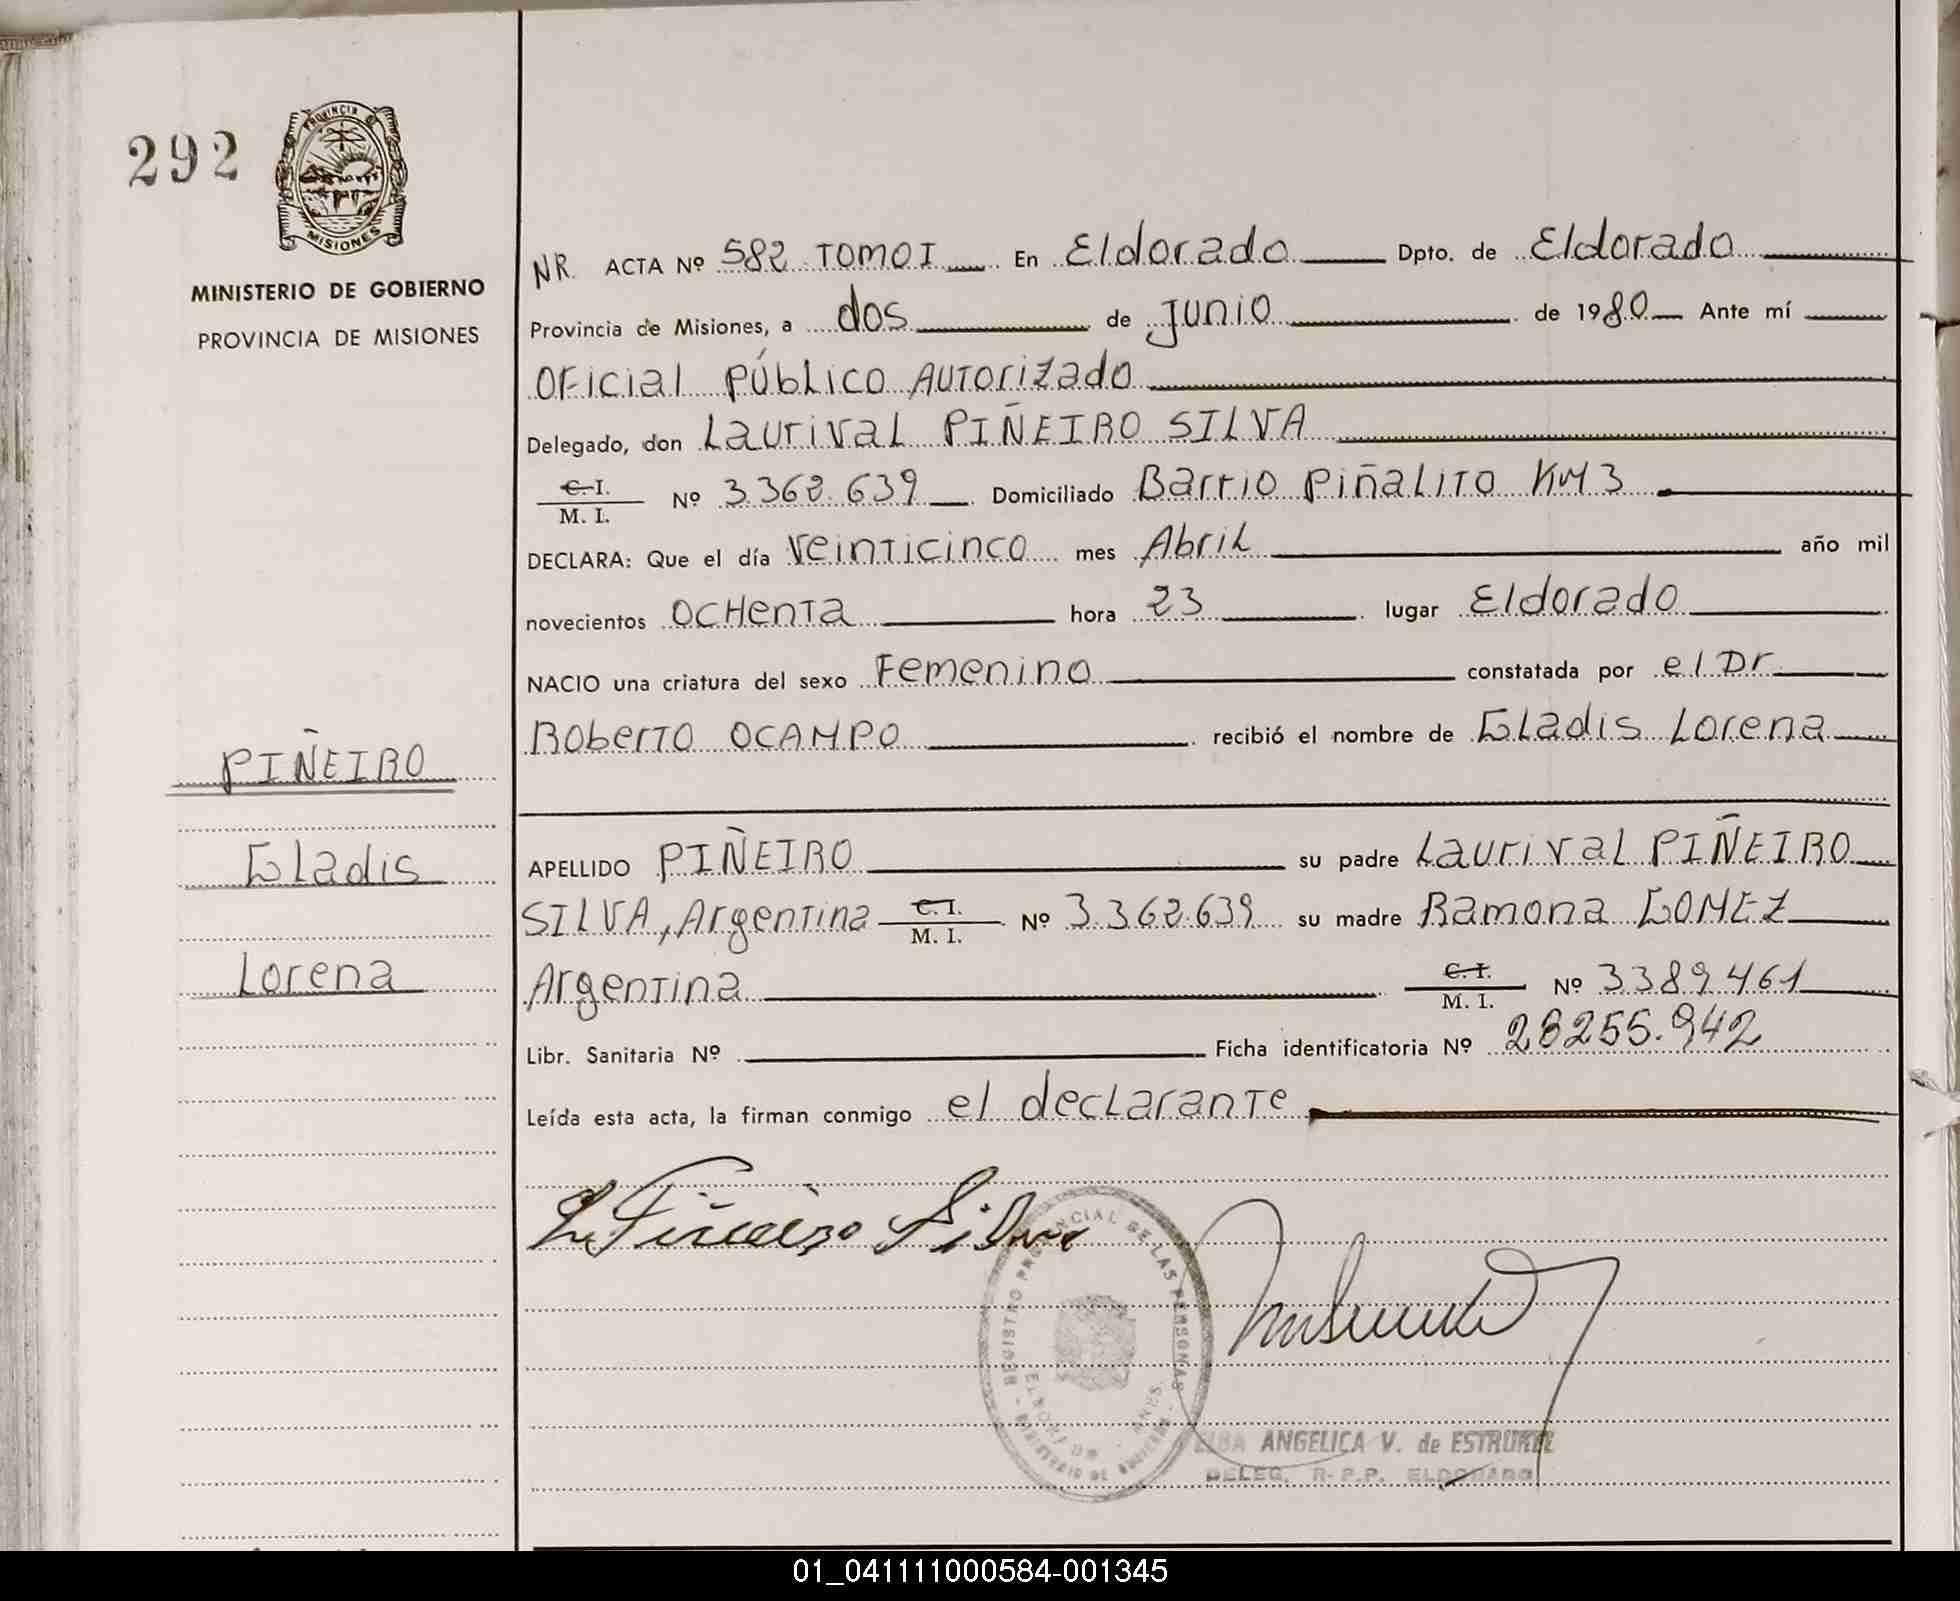 292
PROVINCIA DE
MISIONES
MINISTERIO DE GOBIERNO
PROVINCIA DE MISIONES
PIÑEIRO
Gladis
Lorena
NR. ACTA Nº 582 TOMO I En Eldorado Dpto. de Eldorado
Provincia de Misiones, a dos de Junio de 1980 Ante mí
Oficial Público Autorizado
Delegado, don Laurival PIÑEIRO SILVA
C. I.
M. I. Nº 3.362.639 Domiciliado Barrio Piñalito KM 3
DECLARA: Que el día Veinticinco mes Abril año mil
novecientos Ochenta hora 23 lugar Eldorado
NACIO una criatura del sexo Femenino constatada por el Dr
Roberto OCAMPO recibió el nombre de Gladis Lorena
APELLIDO PIÑEIRO su padre Laurival PIÑEIRO
SILVA, Argentina C. I. M. I. Nº 3.362.639 su madre Ramona GOMEZ
Argentina C. I. M. I. Nº 3389461
Libr. Sanitaria Nº Ficha identificatoria Nº 28255.942
Leída esta acta, la firman conmigo el declarante
L Piñeiro Silva
REGISTRO PROVINCIAL DE LAS PERSONAS
ELDORADO
MINISTERIO DE GOBIERNO
ELBA ANGELICA V. de ESTRUKEL
DELEG. R.P.P. ELDORADO
01_041111000584-001345